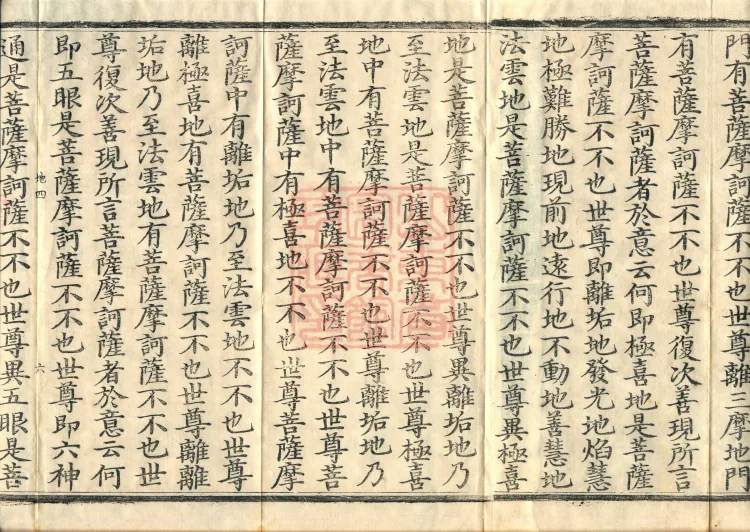 門有菩薩摩訶薩不不也世尊離三摩地門
有菩薩摩訶薩不不也世尊復次善現所言
菩薩摩訶薩者於意云何即極喜地是菩薩
摩訶薩不不也世尊即離垢地發光地焰慧
地極難勝地現前地遠行地不動地善慧地
法雲地是菩薩摩訶薩不不也世尊異極喜
地是菩薩摩訶薩不不也世尊異離垢地乃
至法雲地是菩薩摩訶薩不不也世尊極喜
地中有菩薩摩訶薩不不也世尊離垢地乃
至法雲地中有菩薩摩訶薩不不也世尊菩
薩摩訶薩中有極喜地不不也世尊菩薩摩
訶薩中有離垢地乃至法雲地不不也世尊
離極喜地有菩薩摩訶薩不不也世尊離離
垢地乃至法雲地有菩薩摩訶薩不不也世
尊復次善現所言菩薩摩訶薩者於意云何
即五眼是菩薩摩訶薩不不也世尊即六神
地四 六
通是菩薩摩訶薩不不也世尊異五眼是菩